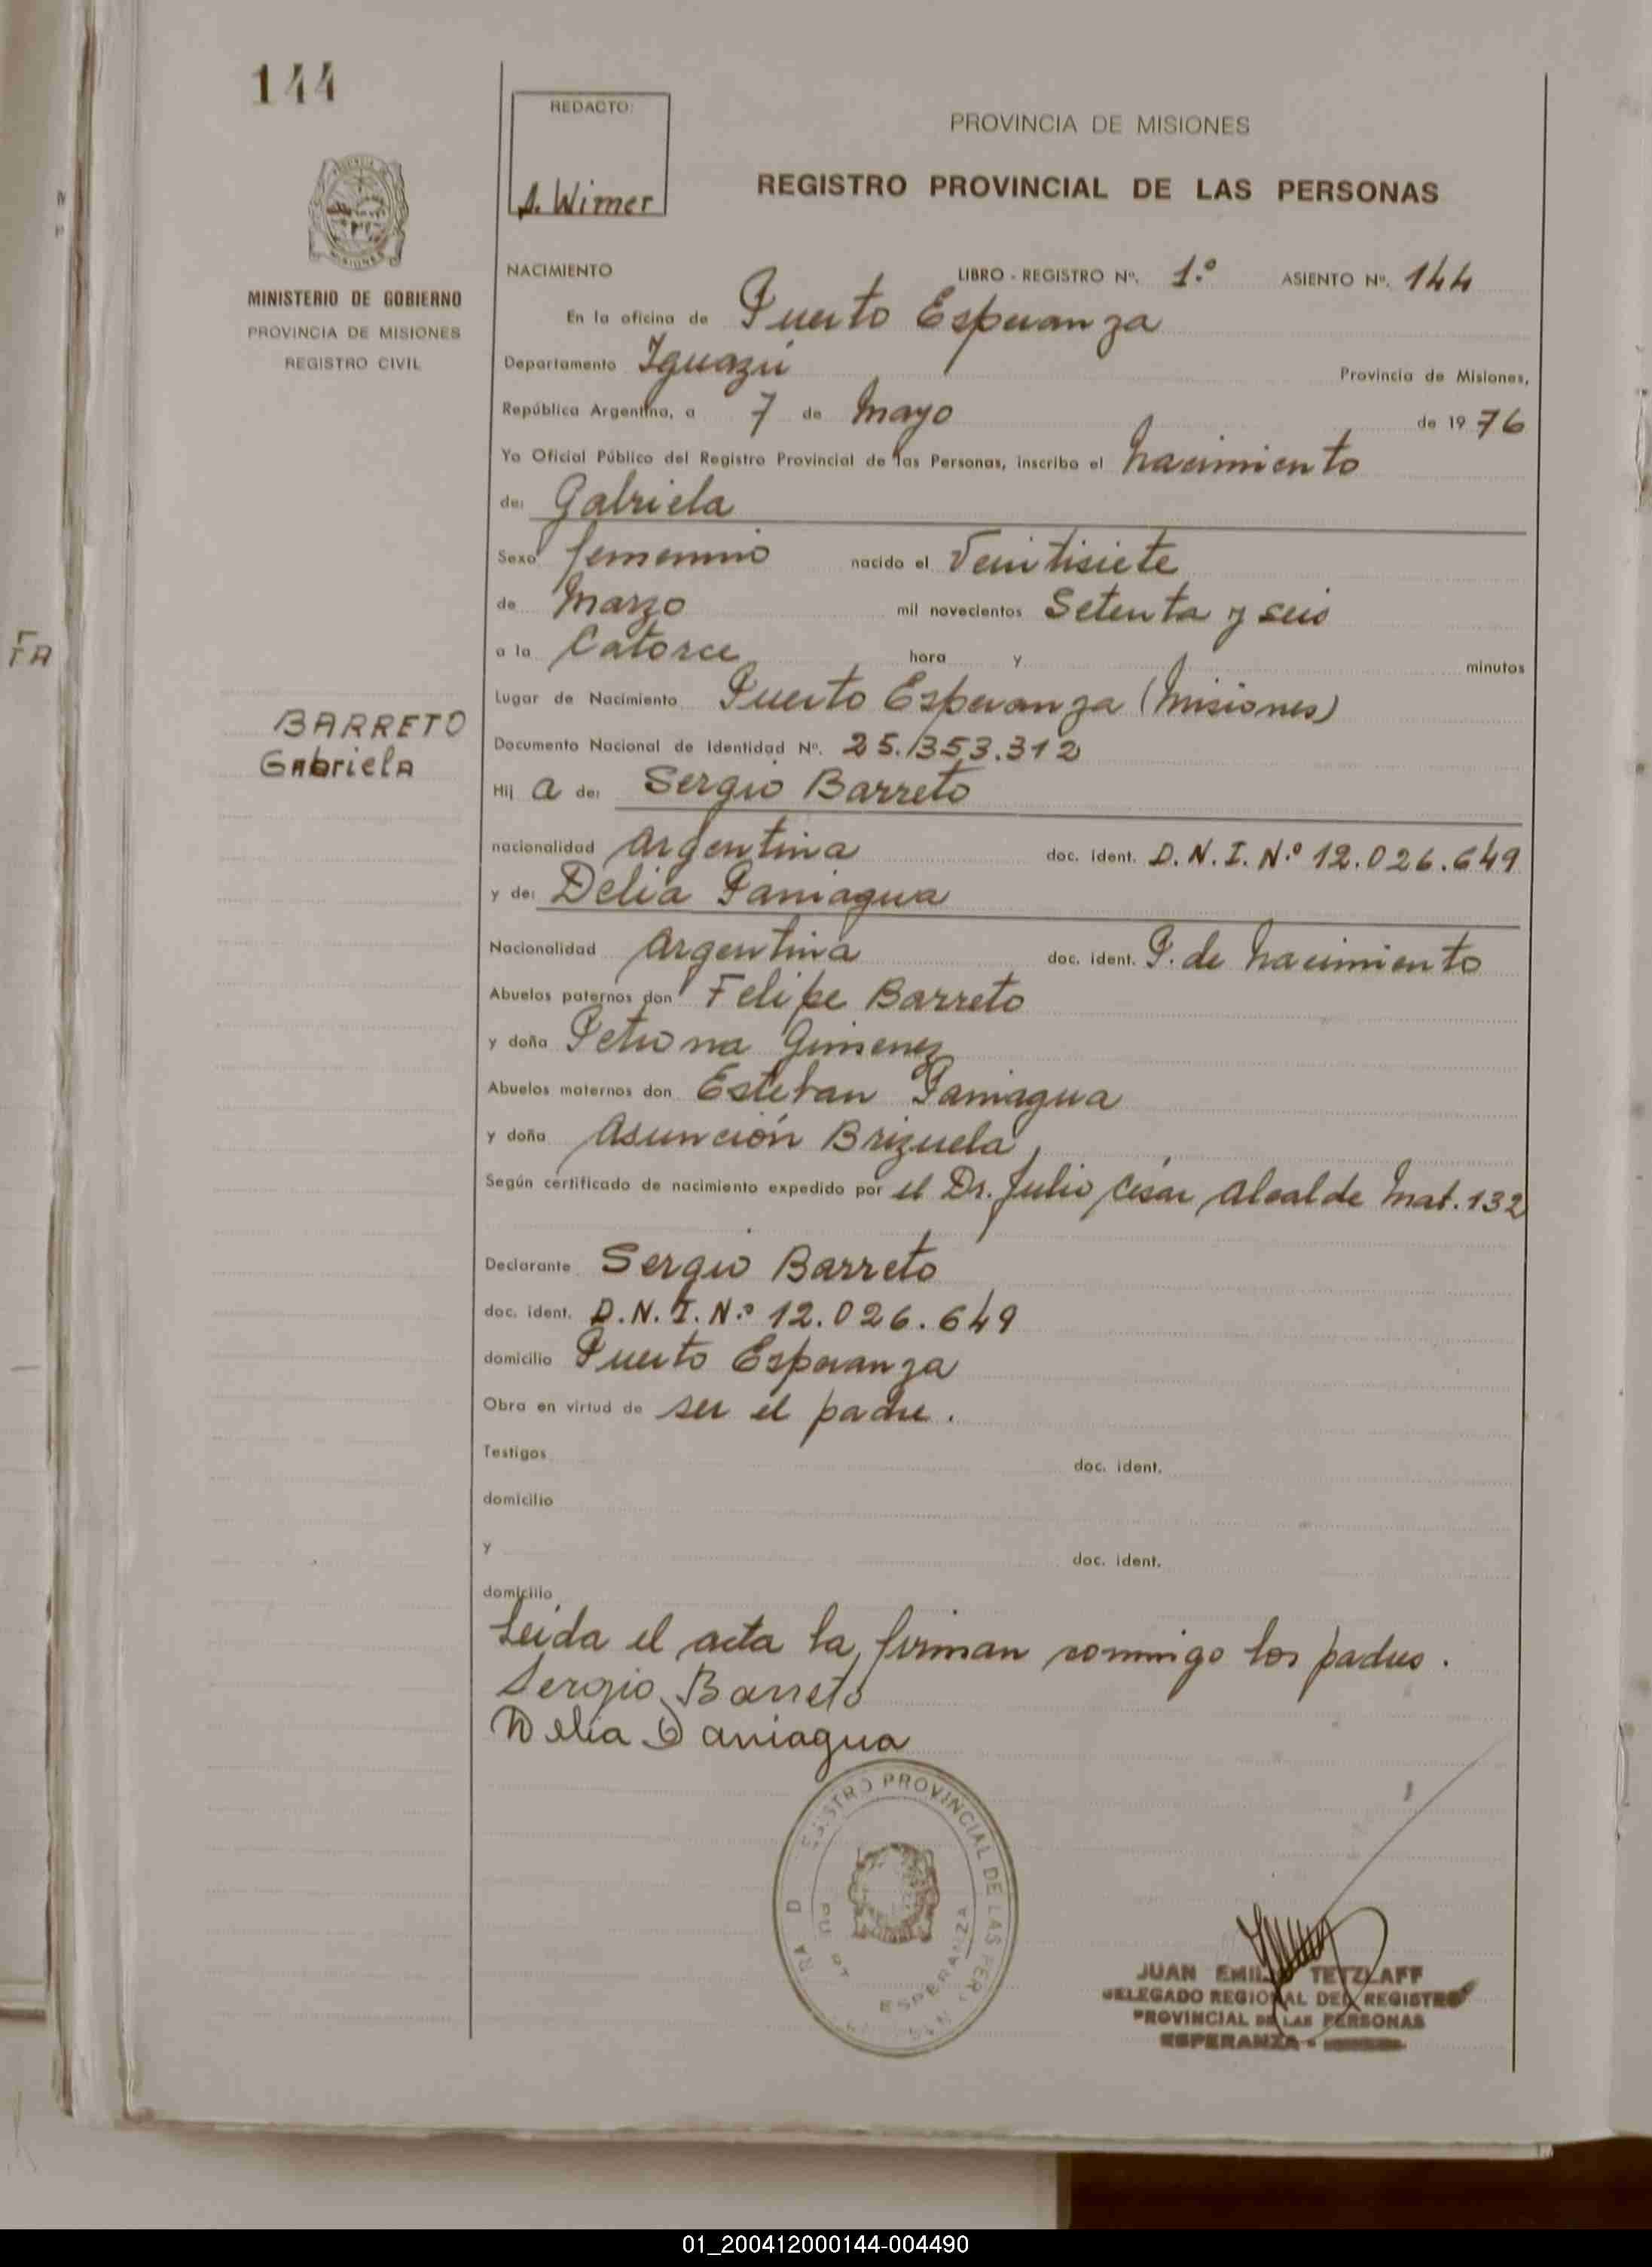 144
REDACTO:
A. Wimer
PROVINCIA DE MISIONES
REGISTRO PROVINCIAL DE LAS PERSONAS
MINISTERIO DE GOBIERNO
PROVINCIA DE MISIONES
REGISTRO CIVIL
NACIMIENTO LIBRO - REGISTRO Nº. 1.º ASIENTO Nº. 144
En la oficina de Puerto Esperanza
Departamento Iguazú Provincia de Misiones,
República Argentina, a 7 de Mayo de 19 76
Yo Oficial Público del Registro Provincial de las Personas, inscribo el nacimiento
de: Gabriela
Sexo femenino nacido el Veintisiete
de Marzo mil novecientos Setenta y seis
a la Catorce hora y minutos
FA
BARRETO
Gabriela
Lugar de Nacimiento Puerto Esperanza (Misiones)
Documento Nacional de Identidad Nº. 25.353.312
Hij a de: Sergio Barreto
nacionalidad Argentina doc. ident. D.N.I. N.º 12.026.649
y de: Delia Paniagua
Nacionalidad Argentina doc. ident. P. de nacimiento
Abuelos paternos don Felipe Barreto
y doña Petrona Gimenez
Abuelos maternos don Esteban Paniagua
y doña Asunción Brizuela
Según certificado de nacimiento expedido por el Dr. Julio César Alcalde Mat. 132
Declarante Sergio Barreto
doc. ident. D.N.I. N.º 12.026.649
domicilio Puerto Esperanza
Obra en virtud de ser el padre.
Testigos doc. ident.
domicilio
y doc. ident.
domicilio
Leida el acta la firman conmigo los padres.
Sergio Barreto
Delia Paniagua
REGISTRO PROVINCIAL DE LAS PER
ESPERANZA
JUAN EMILIO TETZLAFF
DELEGADO REGIONAL DEL REGISTRO
PROVINCIAL DE LAS PERSONAS
ESPERANZA -
01_200412000144-004490